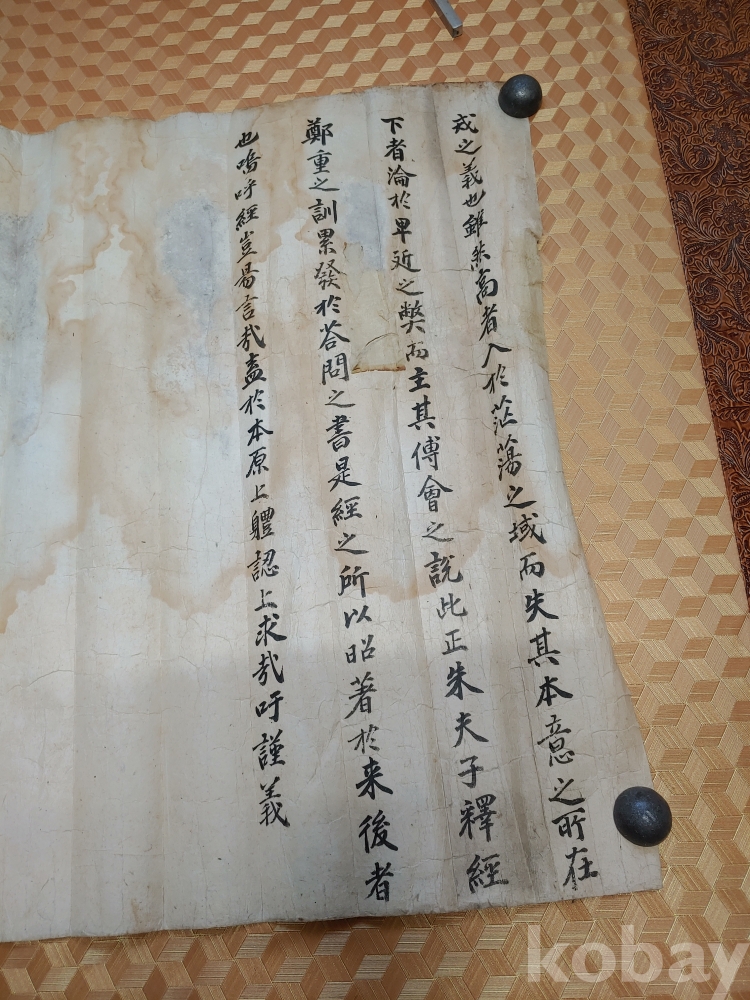 戎之義也雖然高者入於茫蕩之域而失其本意之所在
下者淪於卑近之弊而主其傅會之說此正朱夫子釋經
鄭重之訓累發於答問之書是經之所以昭著於来後者
也嗚呼經豈易言哉盖於本原上軆認上求哉吁謹義
kobay